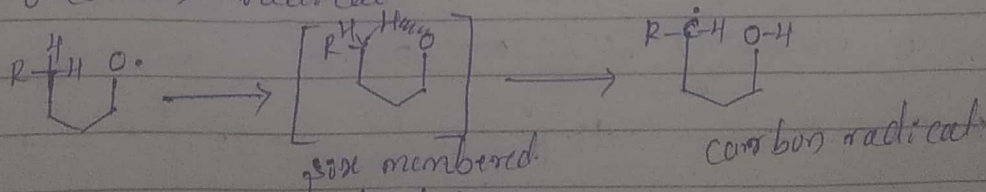 R H H O•
R H H O
R-Ċ-H O-H
six membered.
carbon radical